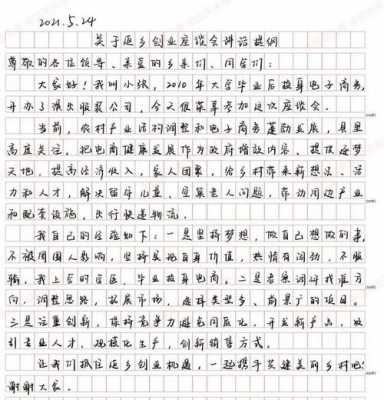 2021.5.24
关于返乡创业座谈会讲话提纲
尊敬的各位领导、亲爱的乡亲们、同学们：
大家好！我叫小张，2010年大学毕业后投身电子商务，
开办了演出服装公司，今天很荣幸参加这次座谈会。
当前，农村产业结构调整和电子商务蓬勃发展，县里
高度关注，把电商健康发展作为政府增收内容、提供逐梦
天地，提高经济收入，家人团聚，给乡村带来新想法、活
力和人才，解决留守儿童、空巢老人问题，带动周边产业
和配套设施，出行快递物流。
我自己的经验如下：一是坚持梦想，做自己想做的事，
不被周围人影响，坚持实现自身价值，热情有闯劲，不服
输，我上学的学区，毕业投身电商。二是要调研找准方
向，调整思路，拓展市场，选择类型多、前景广的项目。
三是注重创新，保持竞争力避免同质化，开发新产品，吸
引专业人才，规模化生产，创新销售方式。
让我们抓住返乡创业机遇，一起携手共建美丽乡村吧！
谢谢大家。